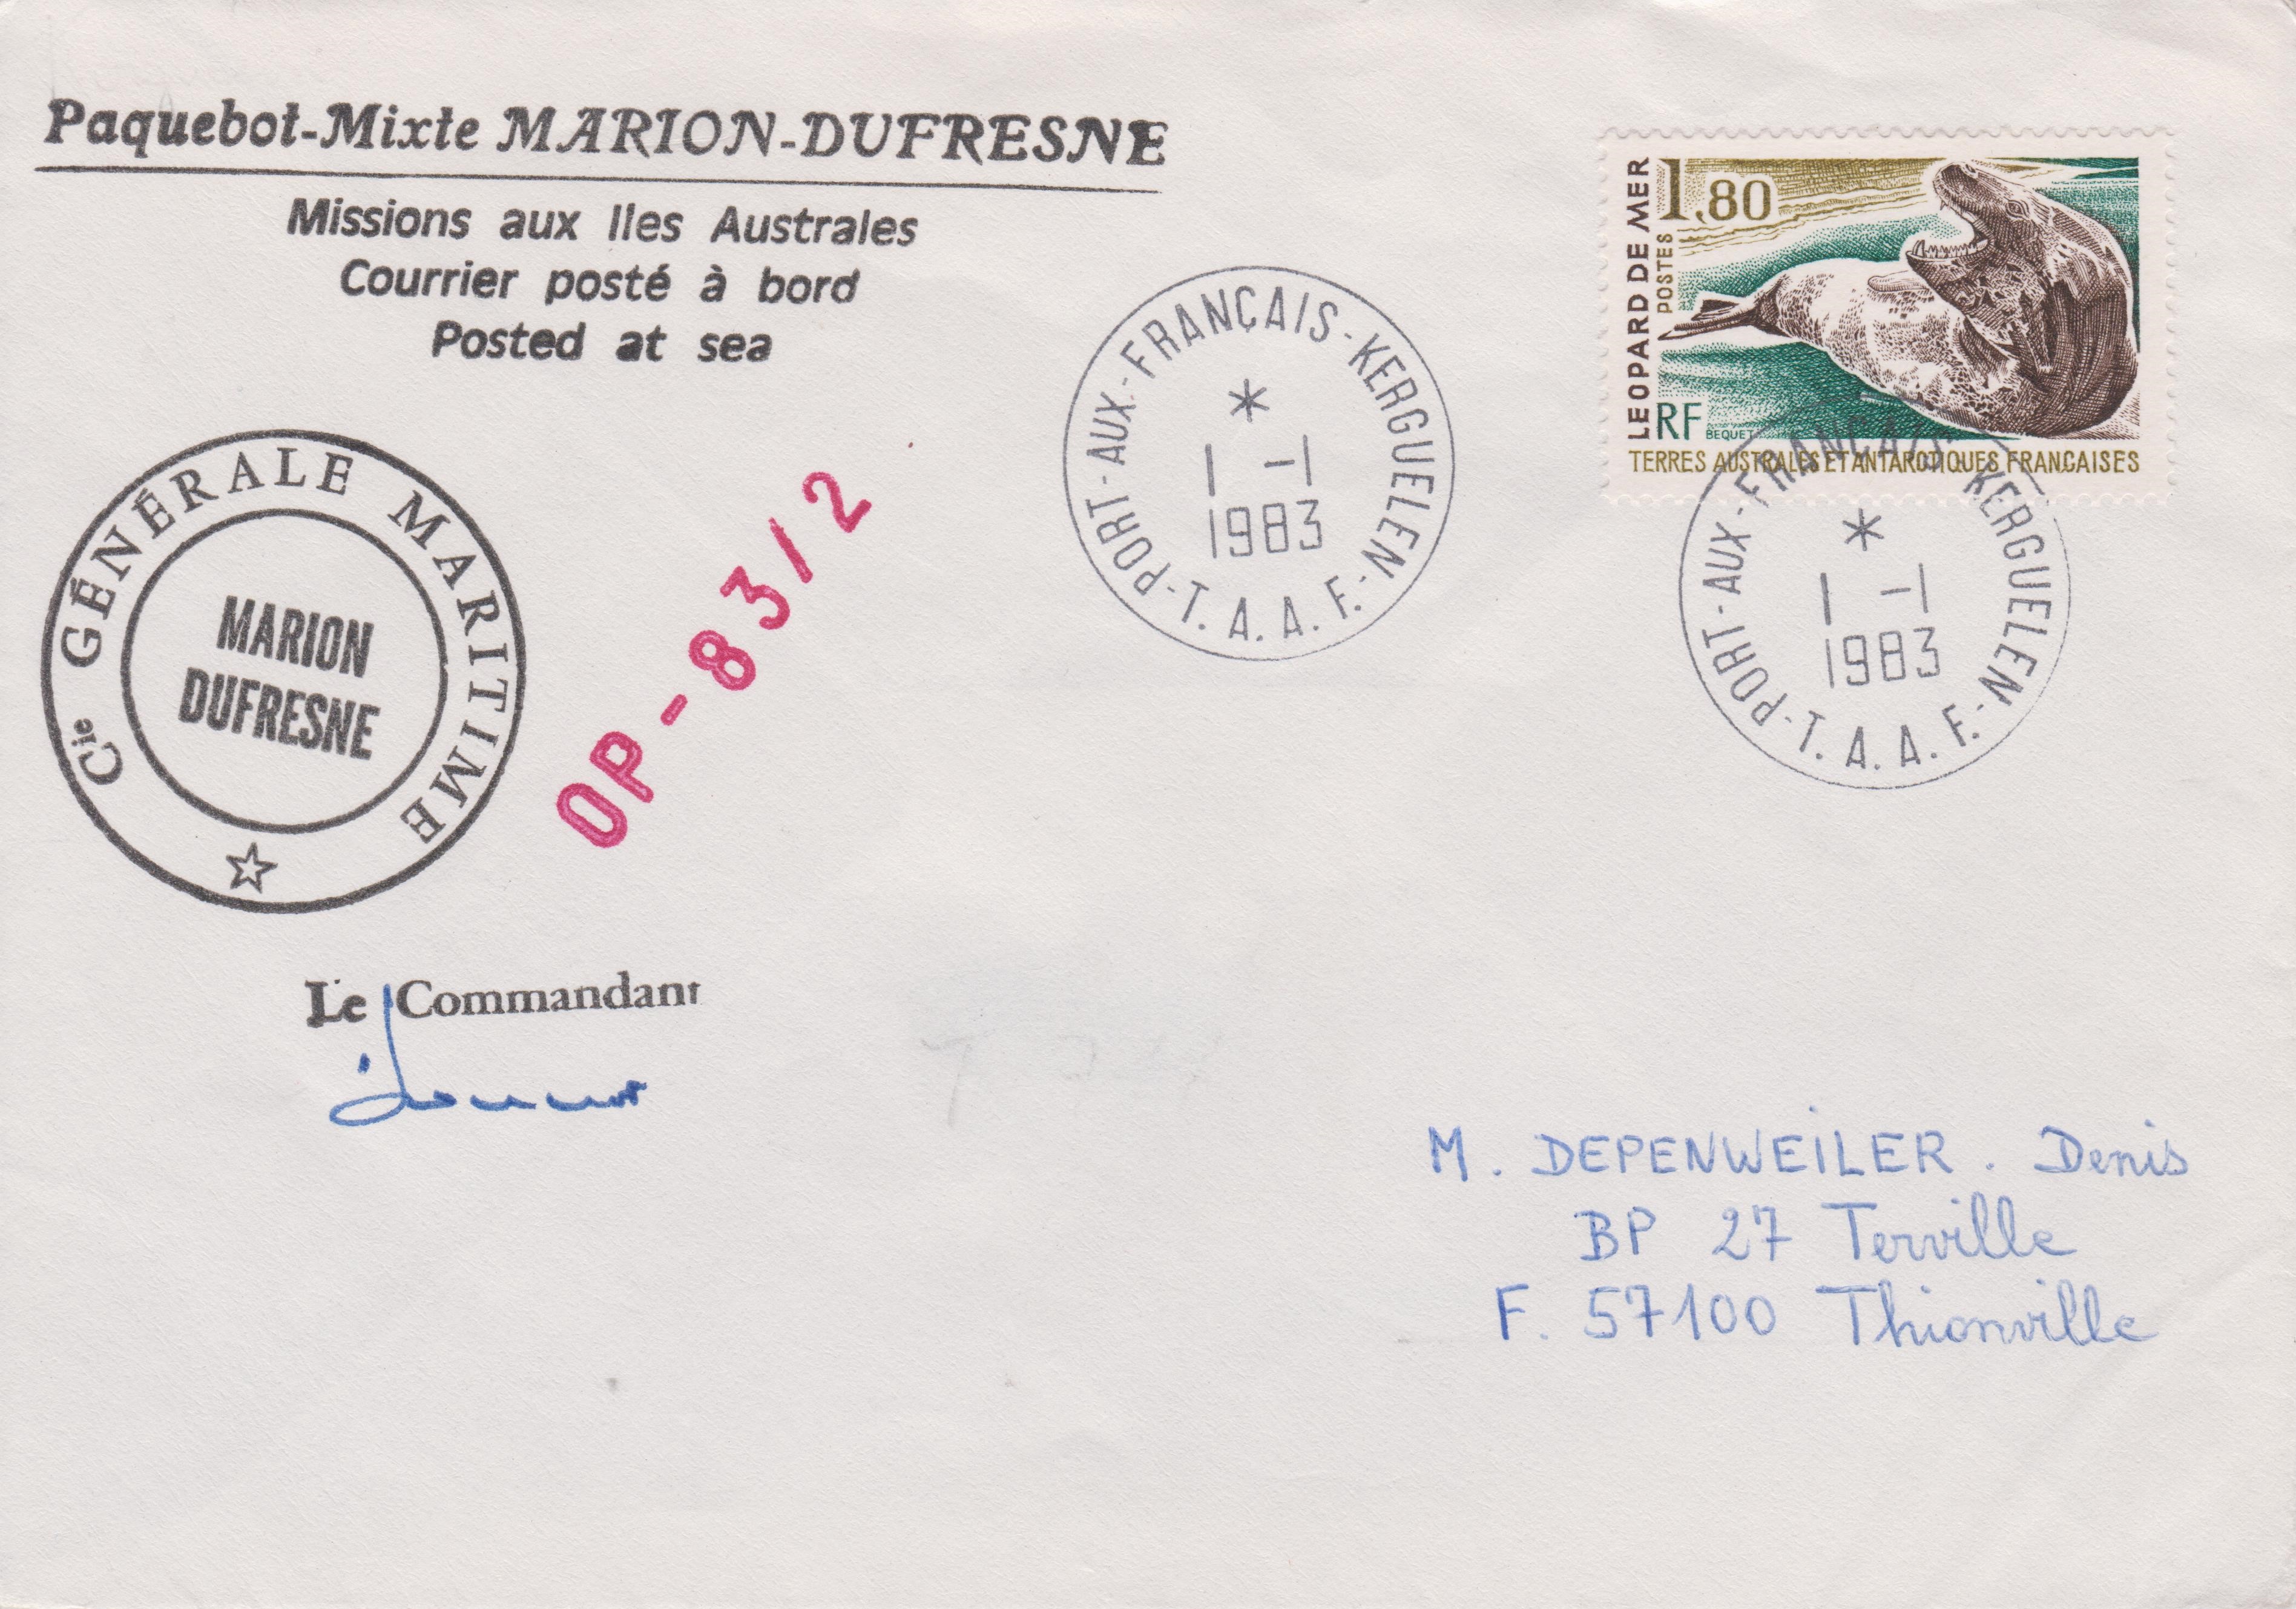 Paquebot-Mixte MARION-DUFRESNE
Missions aux Iles Australes
Courrier posté à bord
Posted at sea
Cie GÉNÉRALE MARITIME
MARION
DUFRESNE
OP-83/2
PORT-AUX-FRANÇAIS-KERGUELEN-T.A.A.F.-
1 -1
1983
LEOPARD DE MER
1,80
POSTES
RF
BEQUET
TERRES AUSTRALES ET ANTARCTIQUES FRANÇAISES
PORT-AUX-FRANÇAIS-KERGUELEN-T.A.A.F.-
1 -1
1983
Le Commandant
M. DEPENWEILER. Denis
BP 27 Terville
F. 57100 Thionville